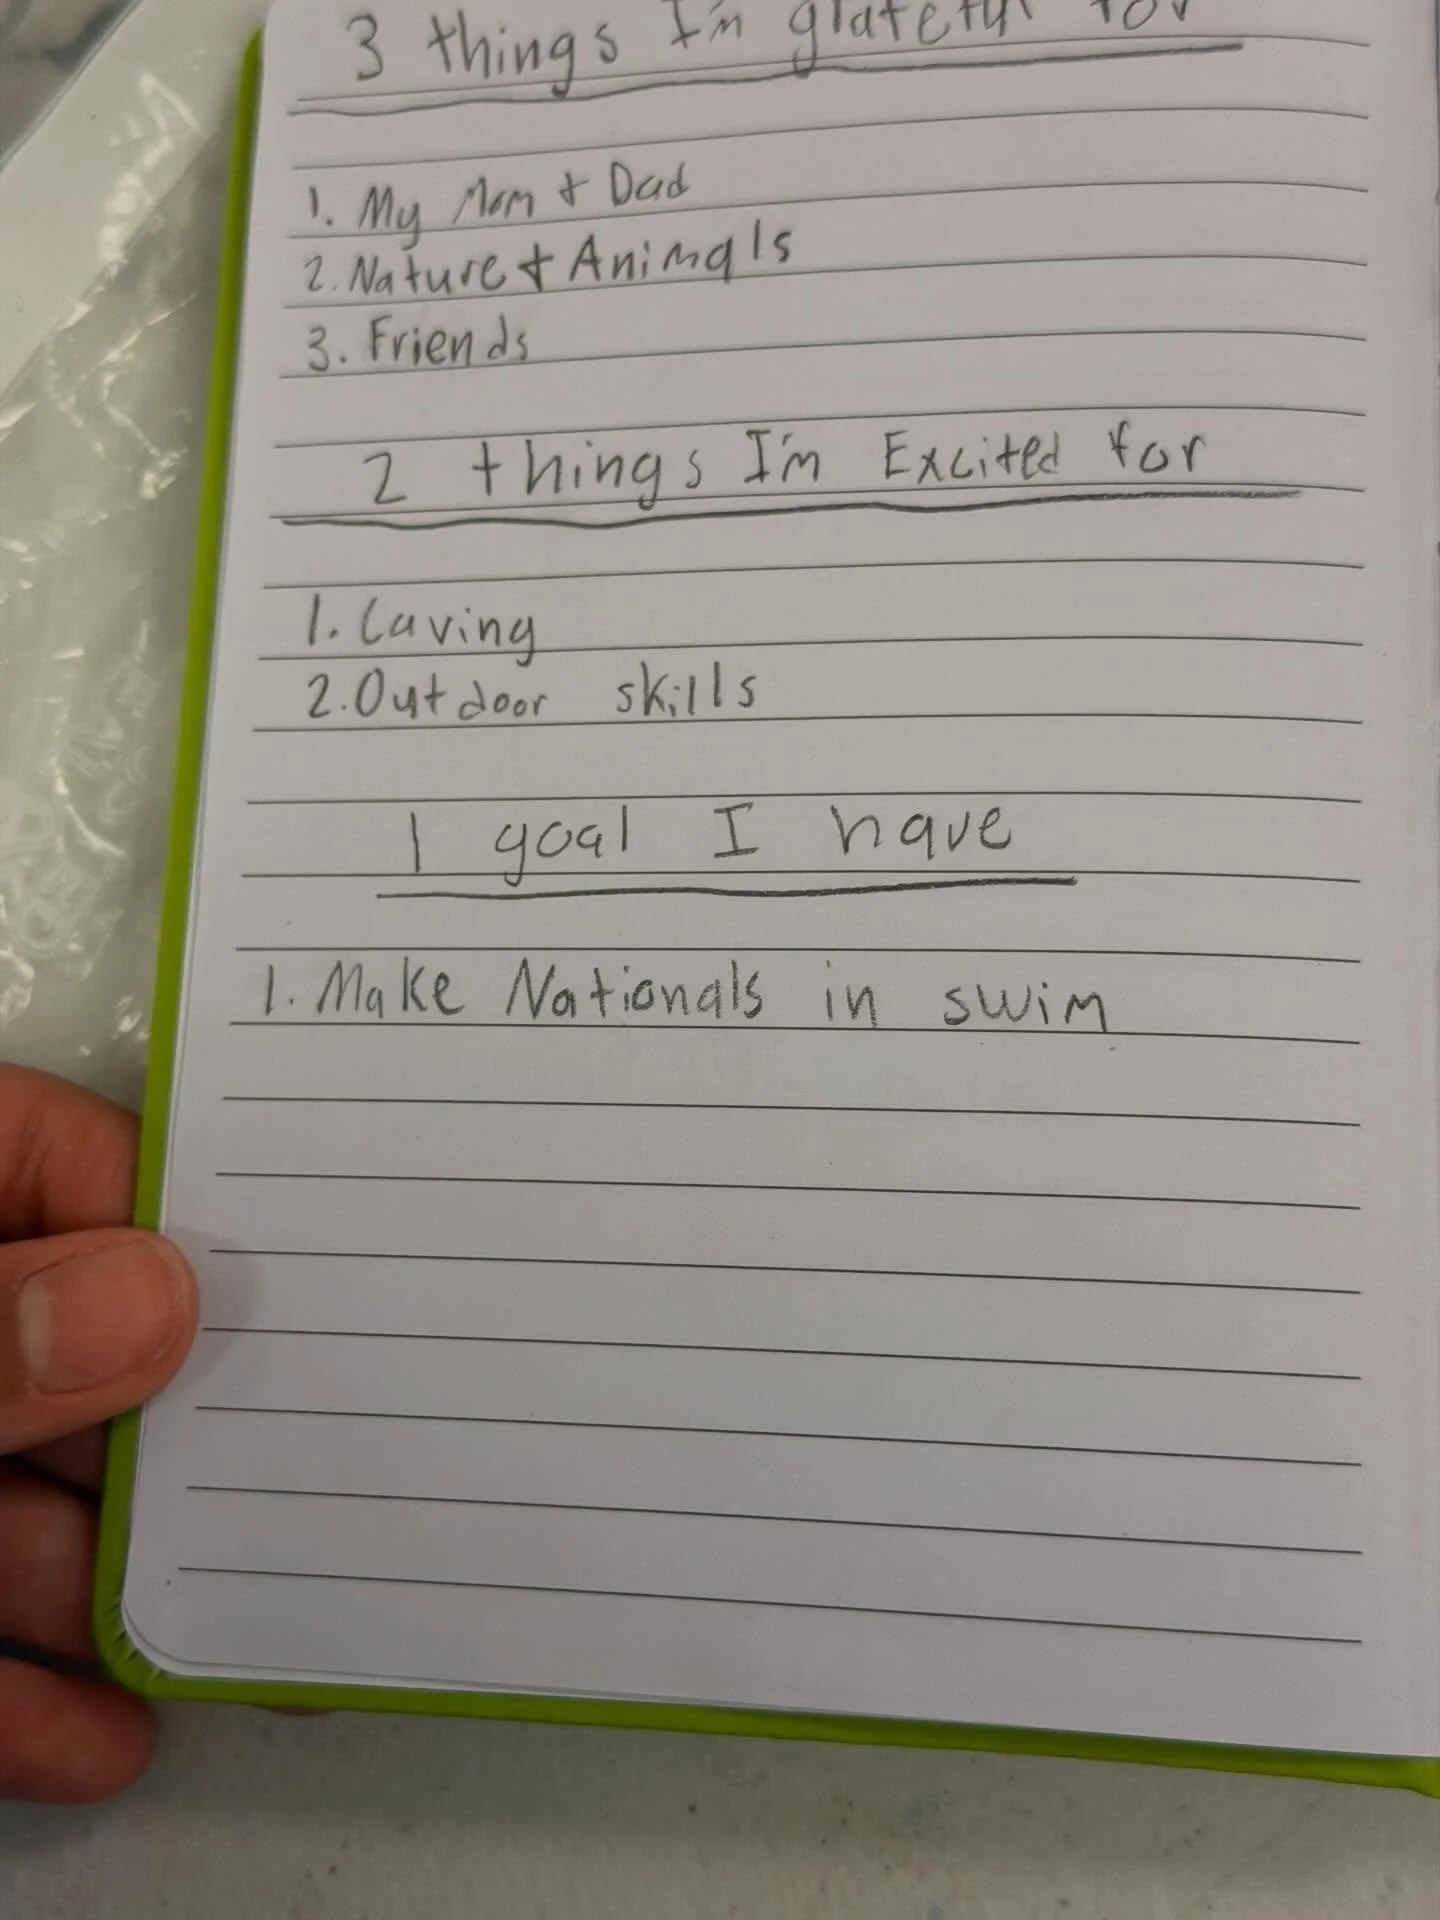 3 things I'm grateful for
1. My Mom + Dad
2. Nature + Animals
3. Friends
2 things I'm Excited for
1. Caving
2. Outdoor skills
1 goal I have
1. Make Nationals in swim